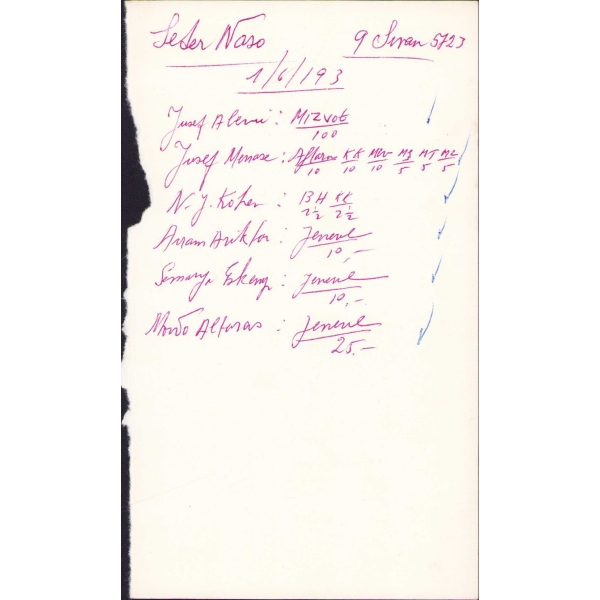 Seфer Naso 9 Sivan 5723
1/6/193
Jusef Alevi : MIZVOt
100
Jusef Menase : Aftara KK MBV MZ MT ML
10 10 10 5 5 5
N. J. Kohen : BH KK
2½ 2½
Avram Avikfor : Jenerul
10,-
Semarya Eskenazi : Jenerul
10,-
Mordo Alfaras : Jenerul
25.-